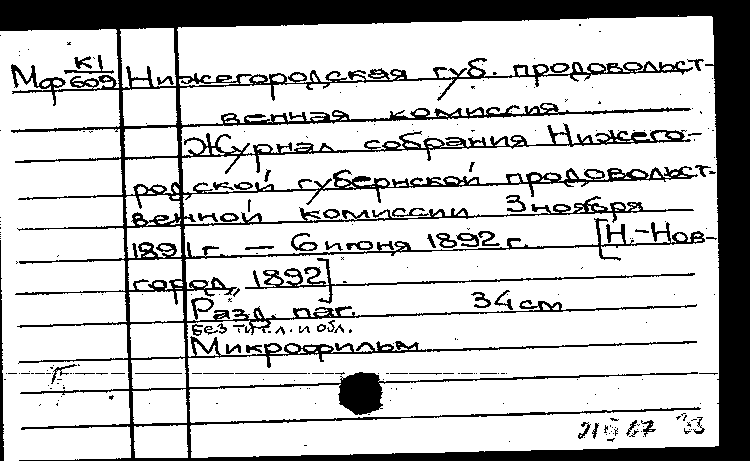 Мф К1/609 Нижегородская губ. продовольст-
венная комиссия.
Журнал собрания Нижего-
родской губернской продовольст-
венной комиссии 3 ноября
1891 г. — 6 июня 1892 г. [Н.-Нов-
город, 1892].
Разд. паг. 34 см
Без тит. л. и обл.
Микрофильм